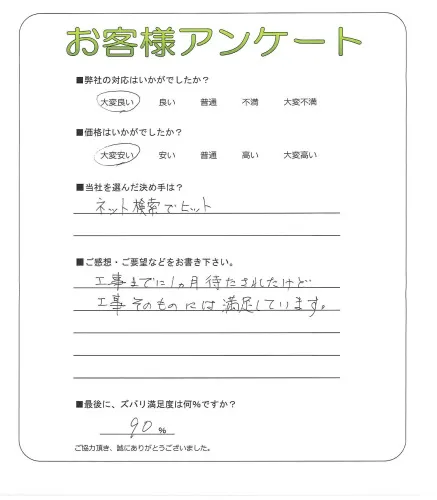 お客様アンケート
■弊社の対応はいかがでしたか？
大変良い 良い 普通 不満 大変不満
■価格はいかがでしたか？
大変安い 安い 普通 高い 大変高い
■当社を選んだ決め手は？
ネット検索でヒット
■ご感想・ご要望などをお書き下さい。
工事までに1ヵ月待たされたけど
工事そのものには満足しています。
■最後に、ズバリ満足度は何％ですか？
90 ％
ご協力頂き、誠にありがとうございました。